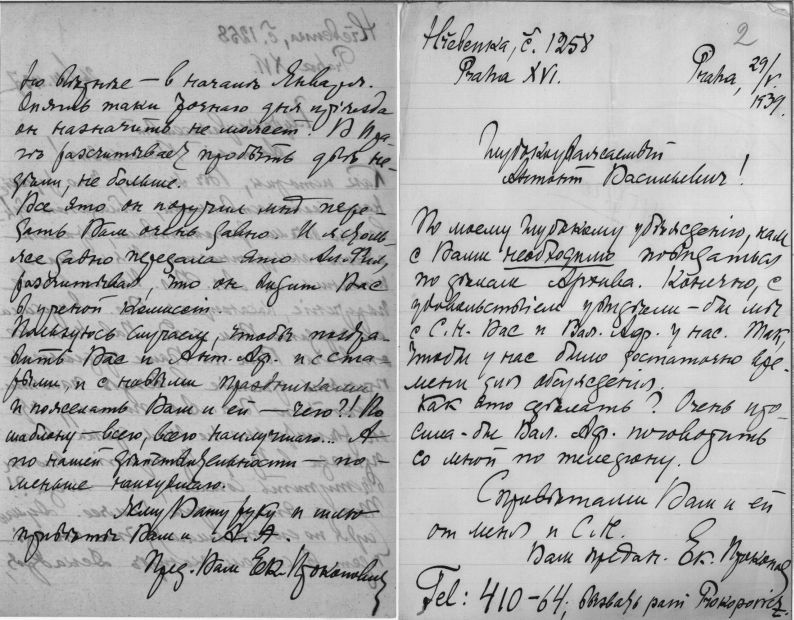 ію
— в началѣ Января.
Опять таки точнаго дня пріѣзда
он назначить не может. В Пра-
гѣ разсчитывает пробыть двѣ не-
дѣли, не больше.
Все это он поручил мнѣ пере-
дать Вам очень давно. И я столь
же давно передала это
разсчитывая, что он видит Вас
в ученой Комиссіи.
Пользуюсь случаем, чтобы поздра-
вить Вас и Ант. Аф. и с ста-
рыми и с новыми праздниками
и пожелать Вам и ей — чего?! По
шаблону — всего, всего наилучшаго... А
по нашей дѣйствительности — по-
меньше наихудшаго.
Жму Вашу руку и шлю
привѣты Вам и А. А.
Пред. Вам Ек. Прокопович
2
Hřebenka, č. 1258
Praha XVI.
Praha, 29/V.
1939.
Глубокоуважаемый
Антон Васильевич!
По моему глубокому убѣжденію, нам
с Вами необходимо повидаться
по дѣлам Архива. Конечно, с
удовольствіем увидѣли-бы мы
с С. Н. Вас и Вал. Аф. у нас. Так,
чтобы у нас было достаточно вре-
мени для обсужденія.
Как это сдѣлать? Очень про-
сила-бы Вал. Аф. поговорить
со мной по телефону.
С привѣтами Вам и ей
от меня и С. Н.
Вам предан. Ек. Прокопов
Tel: 410-64; вызвать paní Prokopovicz.